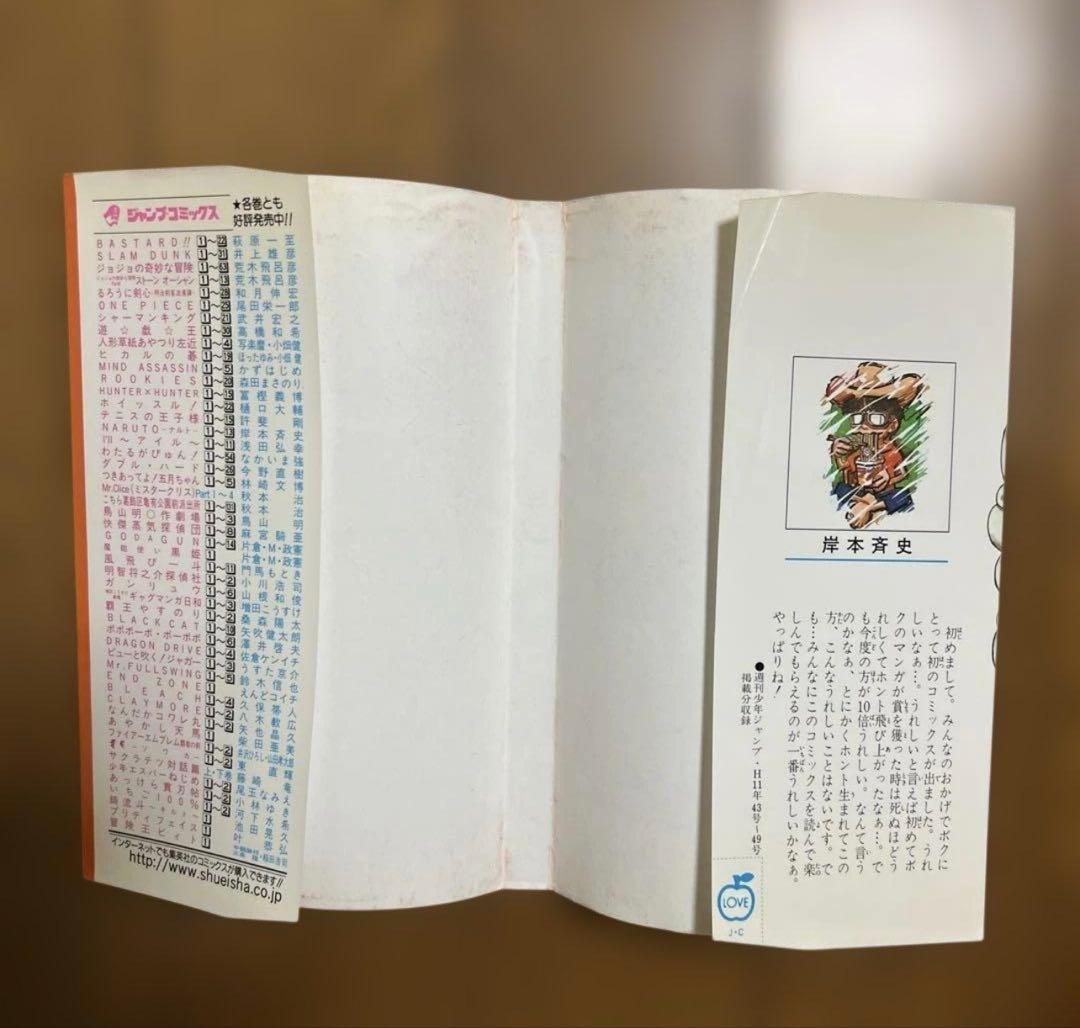 ジャンプコミックス
★各巻とも
好評発売中!!
BASTARD!! 萩原一至
SLAM DUNK 1〜31 井上雄彦
ジョジョの奇妙な冒険 1〜63 荒木飛呂彦
ストーン オーシャン 荒木飛呂彦
るろうに剣心 1〜28 和月伸宏
ONE PIECE 尾田栄一郎
シャーマンキング 武井宏之
遊☆戯☆王 高橋和希
人形草紙あやつり左近 1〜4 写楽麿・小畑健
ヒカルの碁 ほったゆみ・小畑健
MIND ASSASSIN 1〜5 かずはじめ
ROOKIES 森田まさのり
HUNTER×HUNTER 冨樫義博
ホイッスル! 樋口大輔
テニスの王子様 許斐剛
NARUTO-ナルト- 岸本斉史
I'll〜アイル〜 浅田弘幸
わたるがぴゅん! なかいま強
ダブル・ハード 今野直樹
つきあってよ!五月ちゃん 林崎文博
Mr.Clice(ミスタークリス) Part 1〜4 秋本治
こちら葛飾区亀有公園前派出所 秋本治
鳥山明○作劇場 鳥山明
快傑蒸気探偵団 麻宮騎亜
GODAGUN 片倉・M・政憲
魔術使い黒姫 片倉・M・政憲
風飛び一斗 門馬もとき
明智将之介探偵社 小川浩司
ガンリュウ 山根和俊
ギャグマンガ日和 増田こうすけ
覇王やすのり 桑森陽太
BLACK CAT 矢吹健太朗
ボボボーボ・ボーボボ 澤井啓夫
DRAGON DRIVE 佐倉ケンイチ
ピューと吹く!ジャガー うすた京介
Mr.FULLSWING 鈴木信也
END ZONE えんどコイチ
BLEACH 久保帯人
CLAYMORE 八木教広
なんだかコワレ丸 矢也晶久
あやかし天馬 柴田亜美
ファイアーエムブレム覇者の剣 井沢ひろし・山田孝太郎
東直輝
サクラテツ対話篇 上・下巻 藤崎竜
少年エスパーねじめ 尾玉なみえ
あっけら貫刃帖 小林ゆき
いちご100% 河下水希
鏑流斗 池田晃久
プリティフェイス 叶恭弘
冒険王ビィト
インターネットでも集英社のコミックスが購入できます!!
http://www.shueisha.co.jp
岸本斉史
初めまして。みんなのおかげでボクに
とって初のコミックスが出ました。うれ
しいなぁ…。うれしいと言えば初めてボ
クのマンガが賞を獲った時は死ぬほどう
れしくてホント飛び上がったなぁ…。で
も今度の方が10倍うれしい。なんて言う
のかなぁ、とにかくホント生まれてこの
方、こんなうれしいことはないです。で
も…みんなにこのコミックスを読んで楽
しんでもらえるのが一番うれしいかなぁ。
やっぱりね!
●週刊少年ジャンプ・H11年43号〜49号
掲載分収録
LOVE
J・C